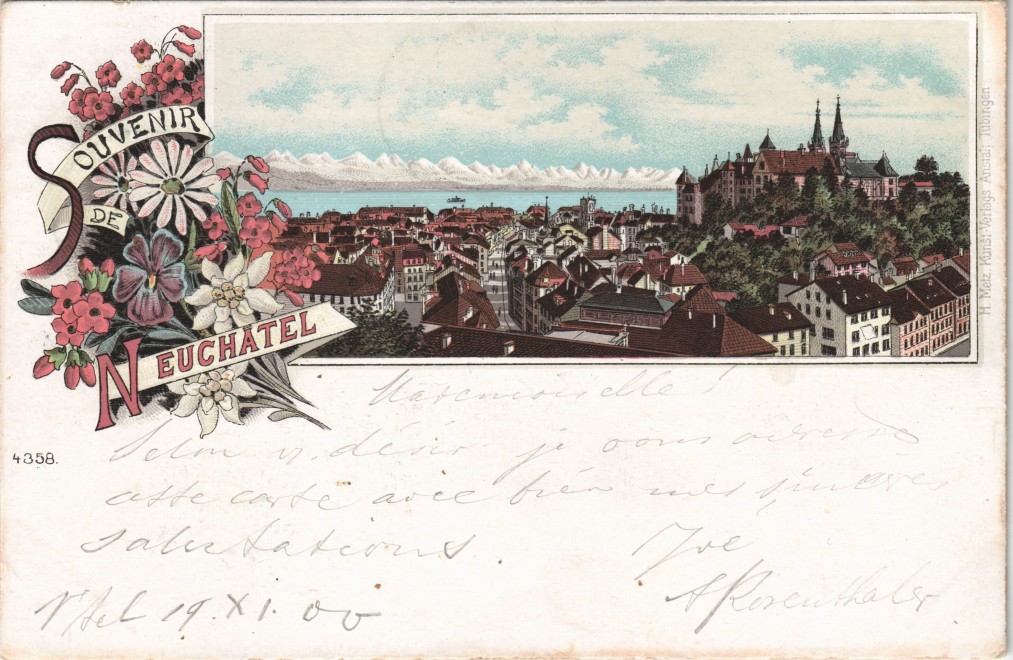 SOUVENIR
DE
NEUCHÂTEL
H. Metz, Kunst-Verlags-Anstalt Tübingen
4358.
Mademoiselle!
Selon v. désir je vous adresse
cette carte avec bien mes sincères
salutations.
A Rosenthaler
N'tel 19. XI. 00